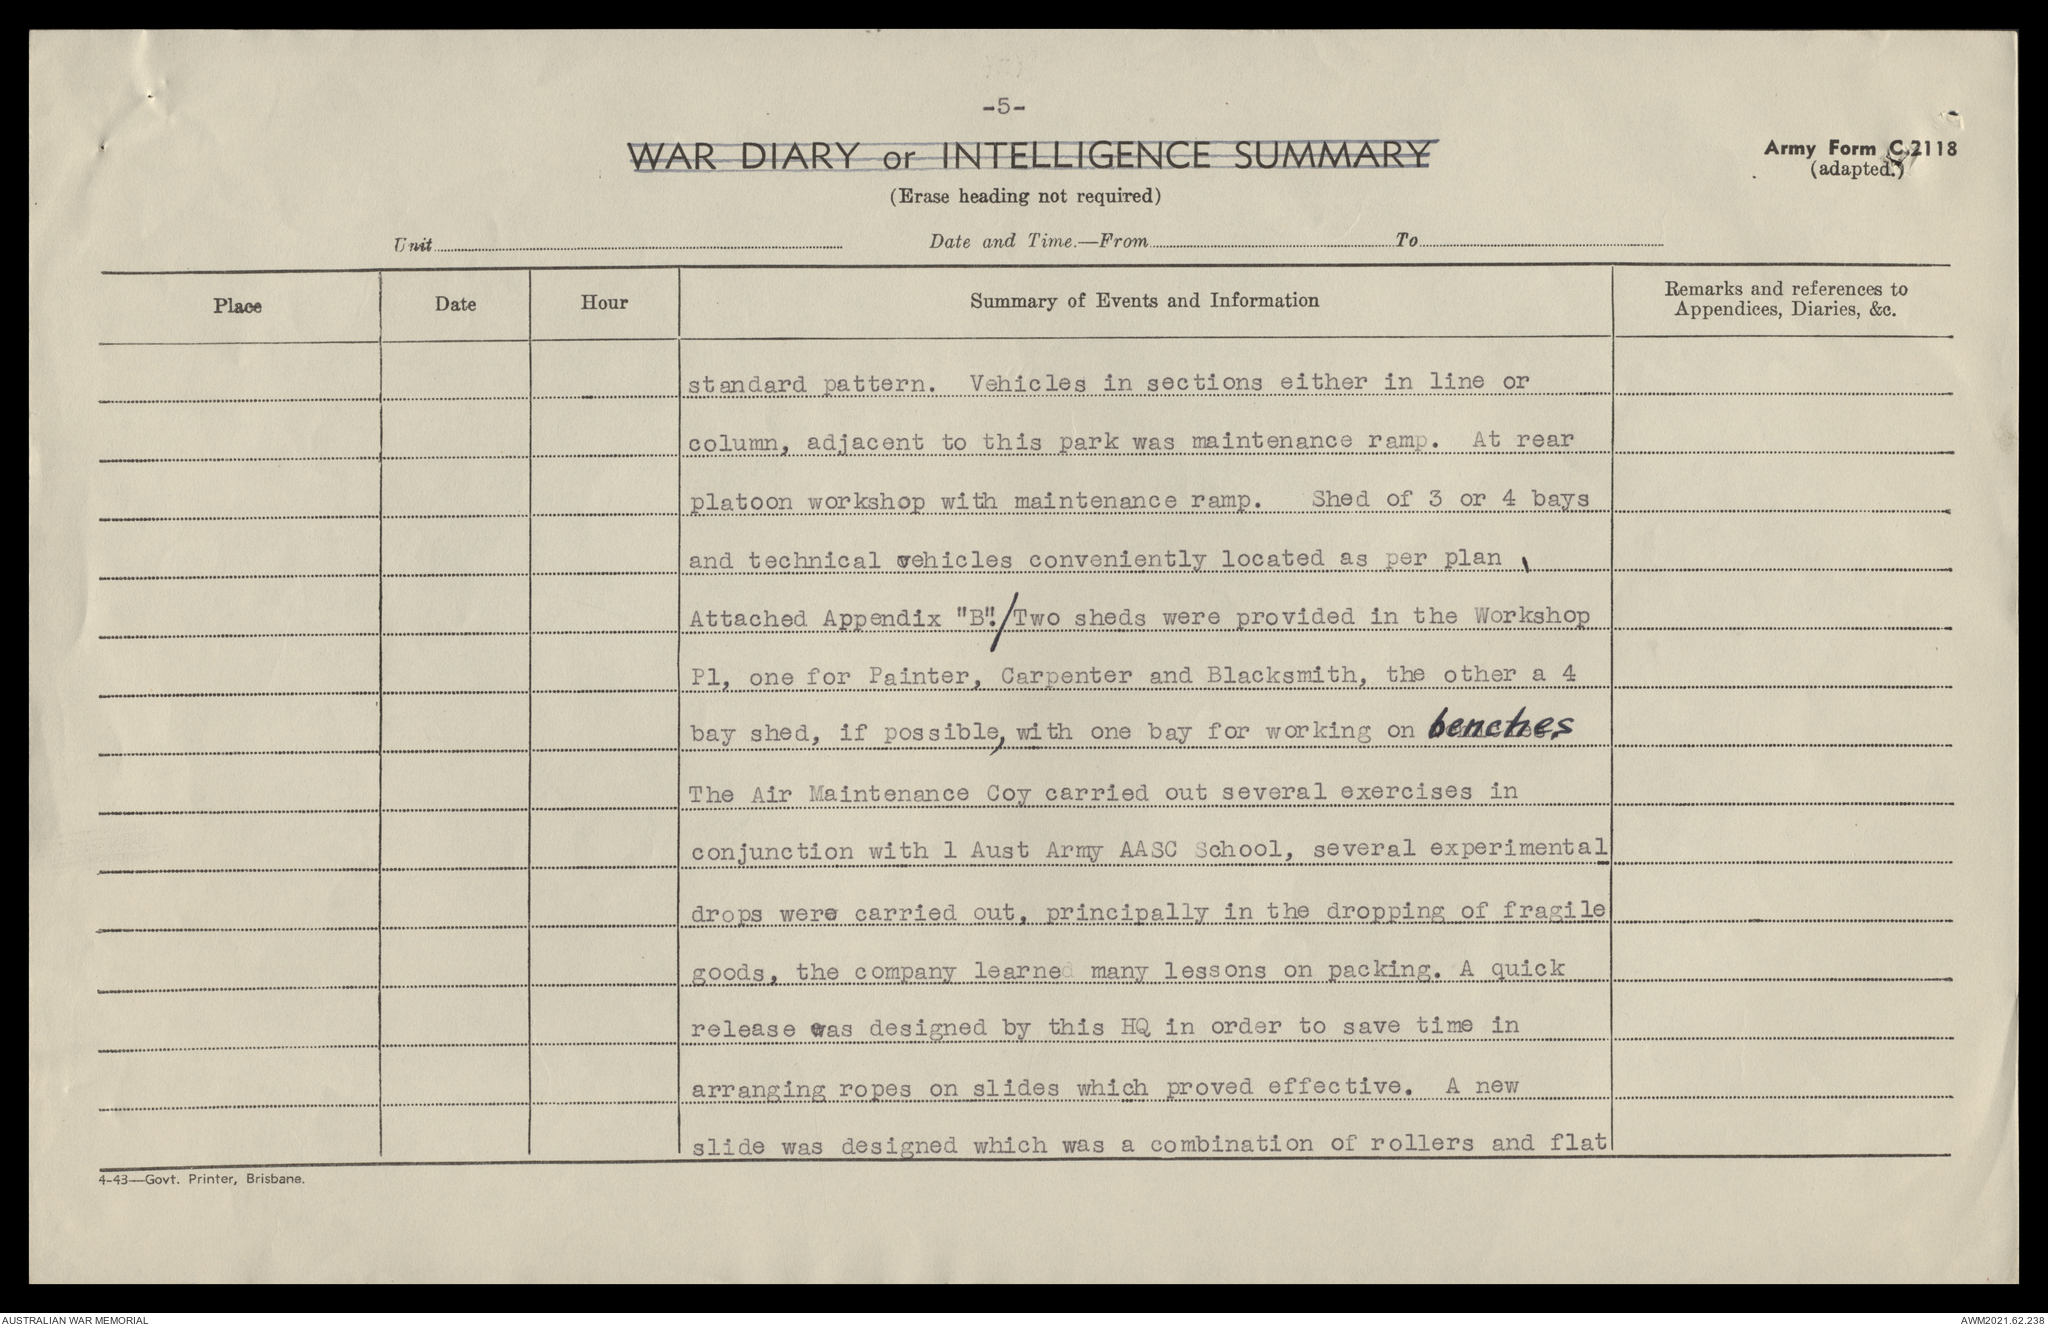 -5-
WAR DIARY or INTELLIGENCE SUMMARY
(Erase heading not required)
Army Form C.2118
(adapted.)
Unit
Date and Time.—From
To
Place
Date
Hour
Summary of Events and Information
Remarks and references to
Appendices, Diaries, &c.
standard pattern. Vehicles in sections either in line or
column, adjacent to this park was maintenance ramp. At rear
platoon workshop with maintenance ramp. Shed of 3 or 4 bays
and technical vehicles conveniently located as per plan,
Attached Appendix "B"./Two sheds were provided in the Workshop
Pl, one for Painter, Carpenter and Blacksmith, the other a 4
bay shed, if possible, with one bay for working on benches
The Air Maintenance Coy carried out several exercises in
conjunction with 1 Aust Army AASC School, several experimental
drops were carried out, principally in the dropping of fragile
goods, the company learned many lessons on packing. A quick
release was designed by this HQ in order to save time in
arranging ropes on slides which proved effective. A new
slide was designed which was a combination of rollers and flat
4-43—Govt. Printer, Brisbane.
AUSTRALIAN WAR MEMORIAL
AWM2021.62.238